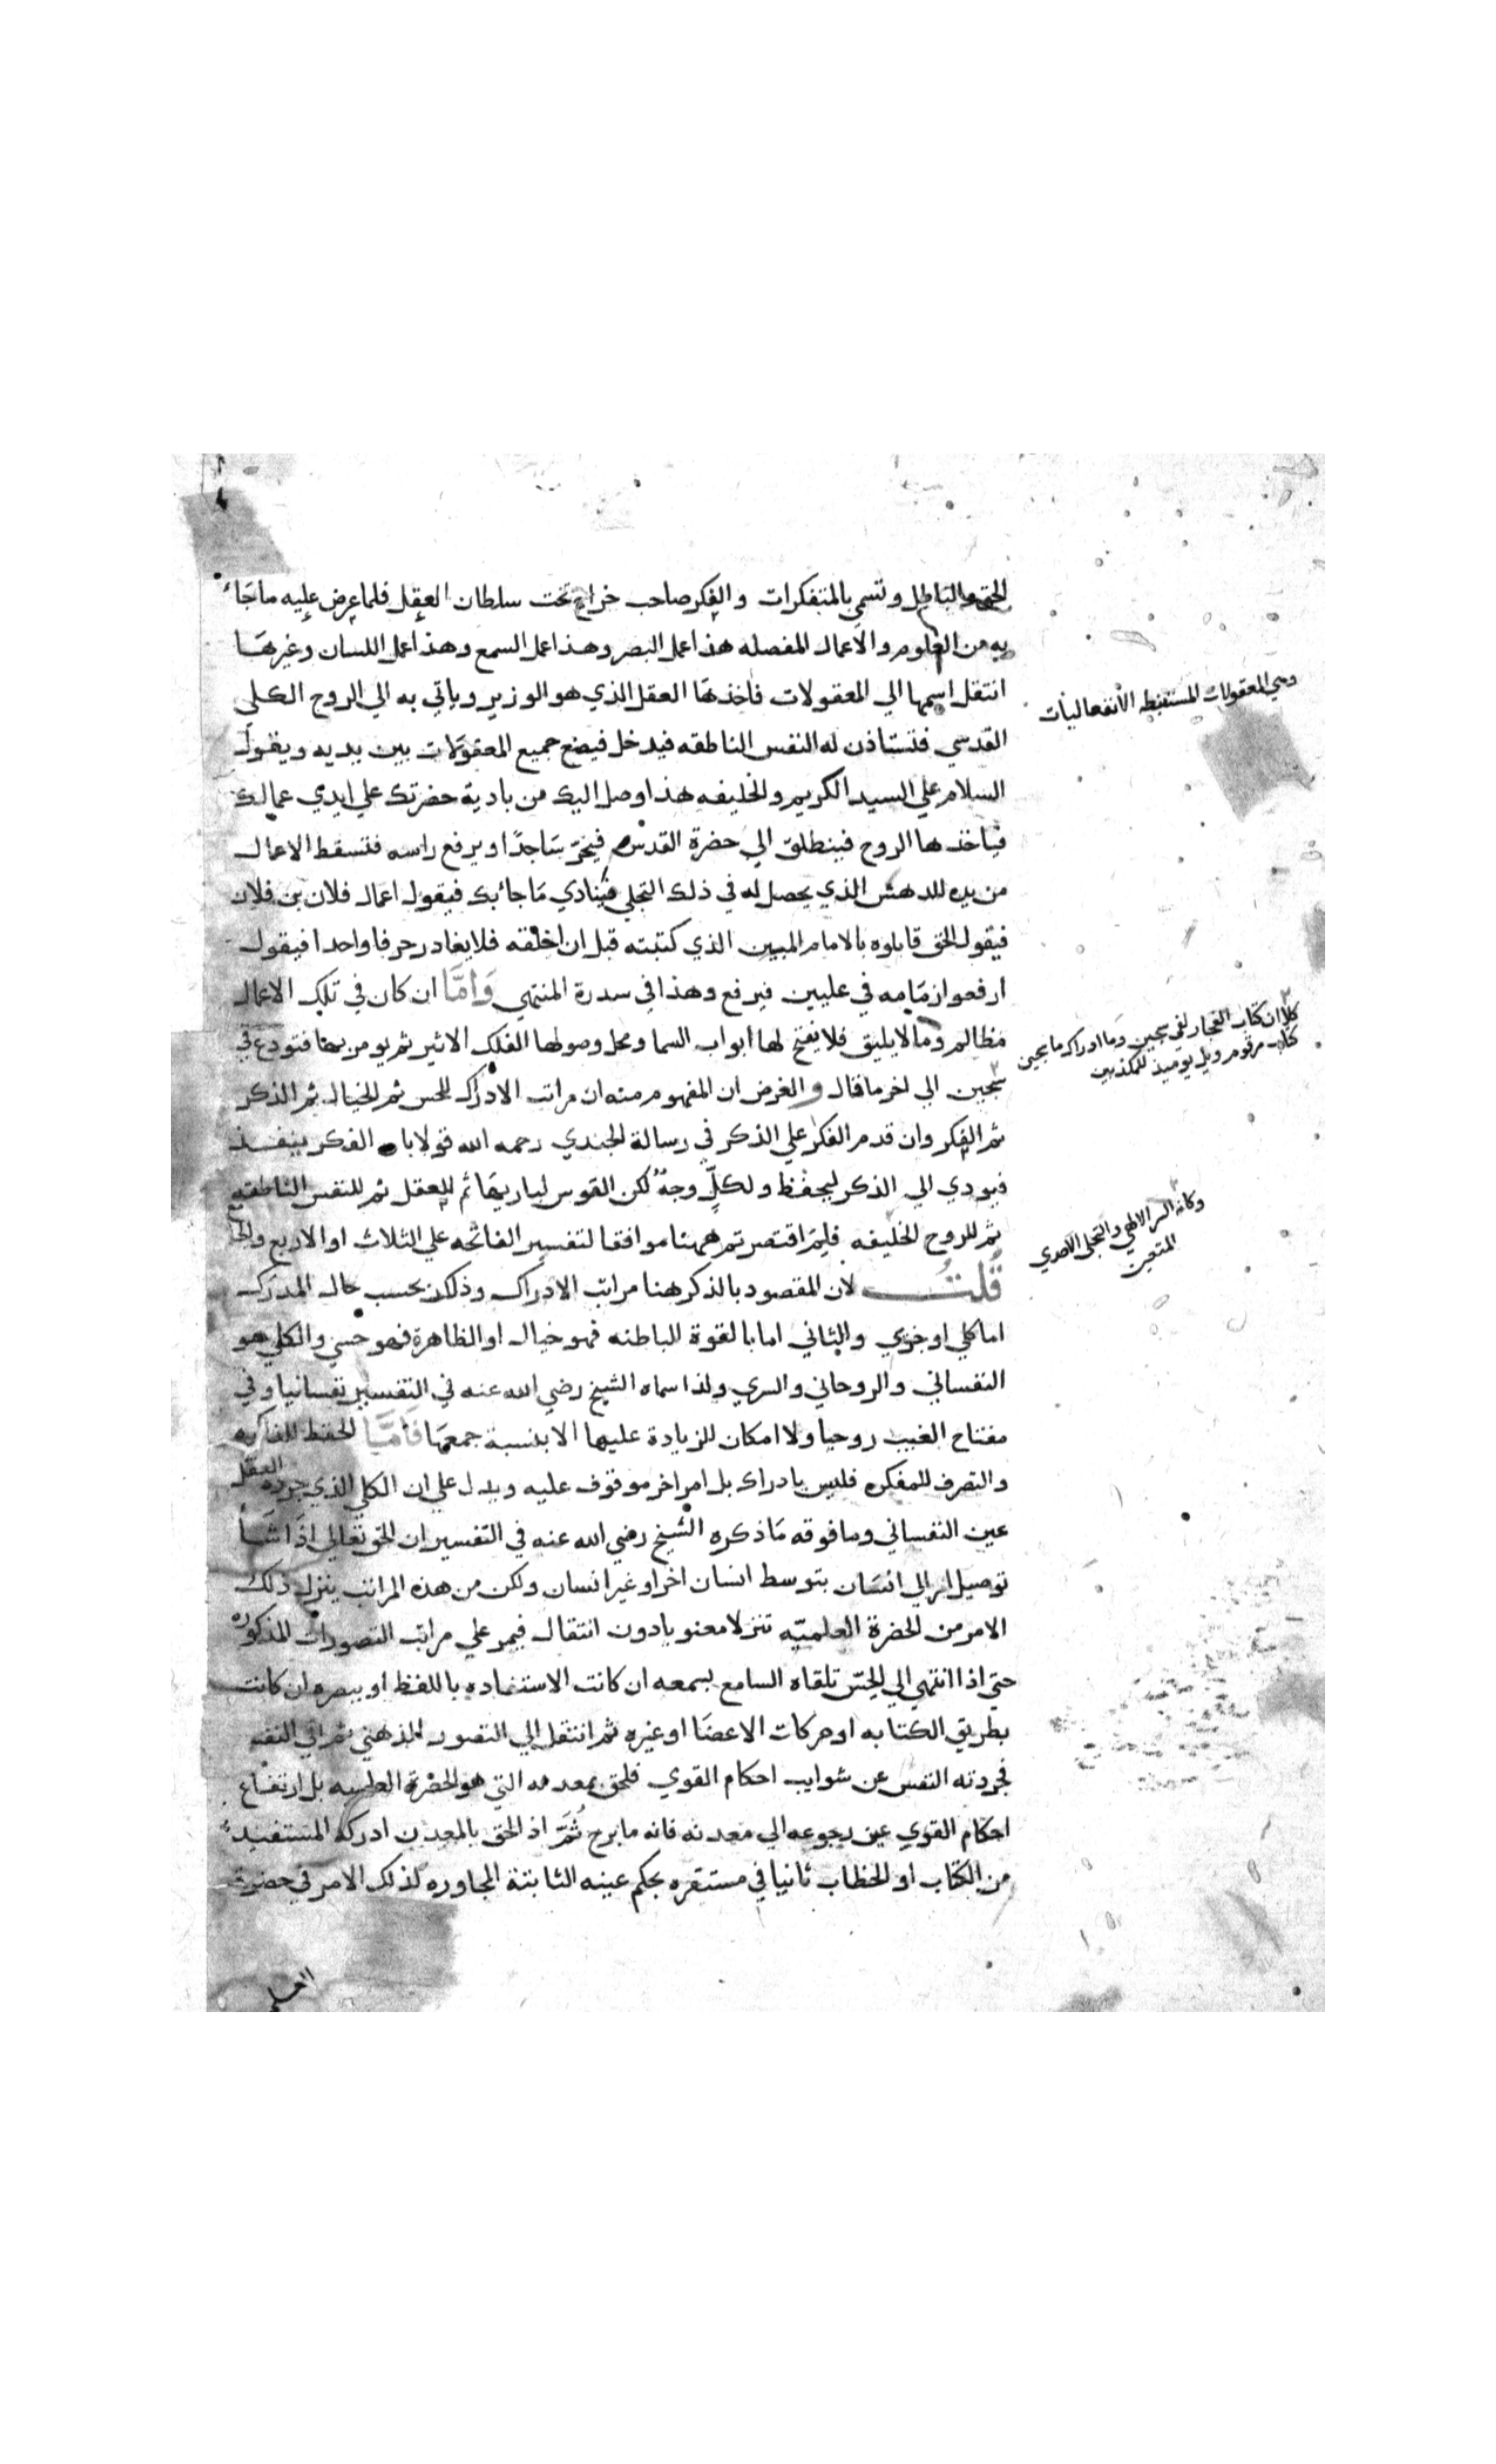 الحق والباطل وتسمي بالمتفكرات والفكر صاحب خراج تحت سلطان العقل فلما عرض عليه ما جاء
به من العلوم والاعمال المفصله هذا عمل البصر وهذا عمل السمع وهذا عمل اللسان وغيرها
انتقل اسمها الي المعقولات فاخذها العقل الذي هو الوزير وياتي به الي الروح الكلي
القدسي فتستاذن له النفس الناطقه فيدخل فيضع جميع المعقولات بين يديه ويقول
السلام علي السيد الكريم والخليفه هذا وصل اليك من بادية حضرتك علي ايدي عمالك
فياخذها الروح فينطلق الي حضرة القدس فيخر ساجدا ويرفع راسه فتسقط الاعمال
من يده للدهش الذي يحصل له في ذلك التجلي فينادي ما جائبك فيقول اعمال فلان بن فلان
فيقول الحق قابلوه بالامام المبين الذي كتبته قبل ان اخلقه فلا يغادر حرفا واحدا فيقول
ارفعوا زمامه في عليين فيرفع وهذا في سدرة المنتهي وَامَّا ان كان في تلك الاعمال
مظالم وما لا يليق فلا يفتح لها ابواب السما ومحل وصولها الفلك الاثير ثم يومر بها فتودع في
سجين الي اخر ما قال والغرض ان المفهوم منه ان مراتب الادراك للحس ثم الخيال ثم الذكر
ثم الفكر وان قدم الفكر علي الذكر في رسالة الجندي رحمه الله قولا بان الفكر ينفذ
فيودي الي الذكر ليحفظ ولكلٍّ وجهٌ لكن القوس لباريها ثم للعقل ثم للنفس الناطقه
ثم للروح الخليفه فلم اقتصرتم ههنا موافقا لتفسير الفاتحه علي الثلاث او الاربع
قُلتُ لان المقصود بالذكر هنا مراتب الادراك وذلك بحسب حال المدرك
اما كلي او جزئي والثاني اما بالقوة الباطنه فهو خيال او الظاهرة فهو حسي والكلي هو
النفساني والروحاني والسري ولذا سماه الشيخ رضي الله عنه في التفسير نفسانيا وفي
مفتاح الغيب روحيا ولا امكان للزيادة عليها الا بنسبة جمعها فَامَّا الحفظ للذاكره
والتصرف للمفكره فليس بادراك بل امر اخر موقوف عليه ويدل علي ان الكلي الذي جرده العقل
عين النفساني وما فوقه ما ذكره الشيخ رضي الله عنه في التفسير ان الحق تعالي اذا شَأ
توصيل امر الي انسان بتوسط انسان اخر او غير انسان ولكن من هذه المراتب ينزل ذلك
الامر من الحضرة العلميه تنزلا معنويا دون انتقال فيمر علي مراتب التصورات المذكوره
حتي اذا انتهي الي الحس تلقاه السامع بسمعه ان كانت الاستفاده باللفظ او ببصره ان كانت
بطريق الكتابه او حركات الاعضا او غيره ثم انتقل الي التصور الذهني ثم الي النفس
فجردته النفس عن شوايب احكام القوي فلحق بمعدنه التي هو الحضرة العلميه بل ارتفاع
احكام القوي عين رجوعه الي معدنه فانه ما برح ثُمَّ اذ الحق بالمعدن ادركه المستفيد
من الكتاب او الخطاب ثانيا في مستقره بحكم عينه الثابتة المجاوره لذلك الامر في حضرة
وهي المعقولات المستنبطه الانفعاليات
كلا ان كتاب الفجار لفي سجين وما ادراك ما سجين
كتاب مرقوم ويل يوميذ للمكذبين
وكانه السر الالهي والتجلي الاحدي
المتعين